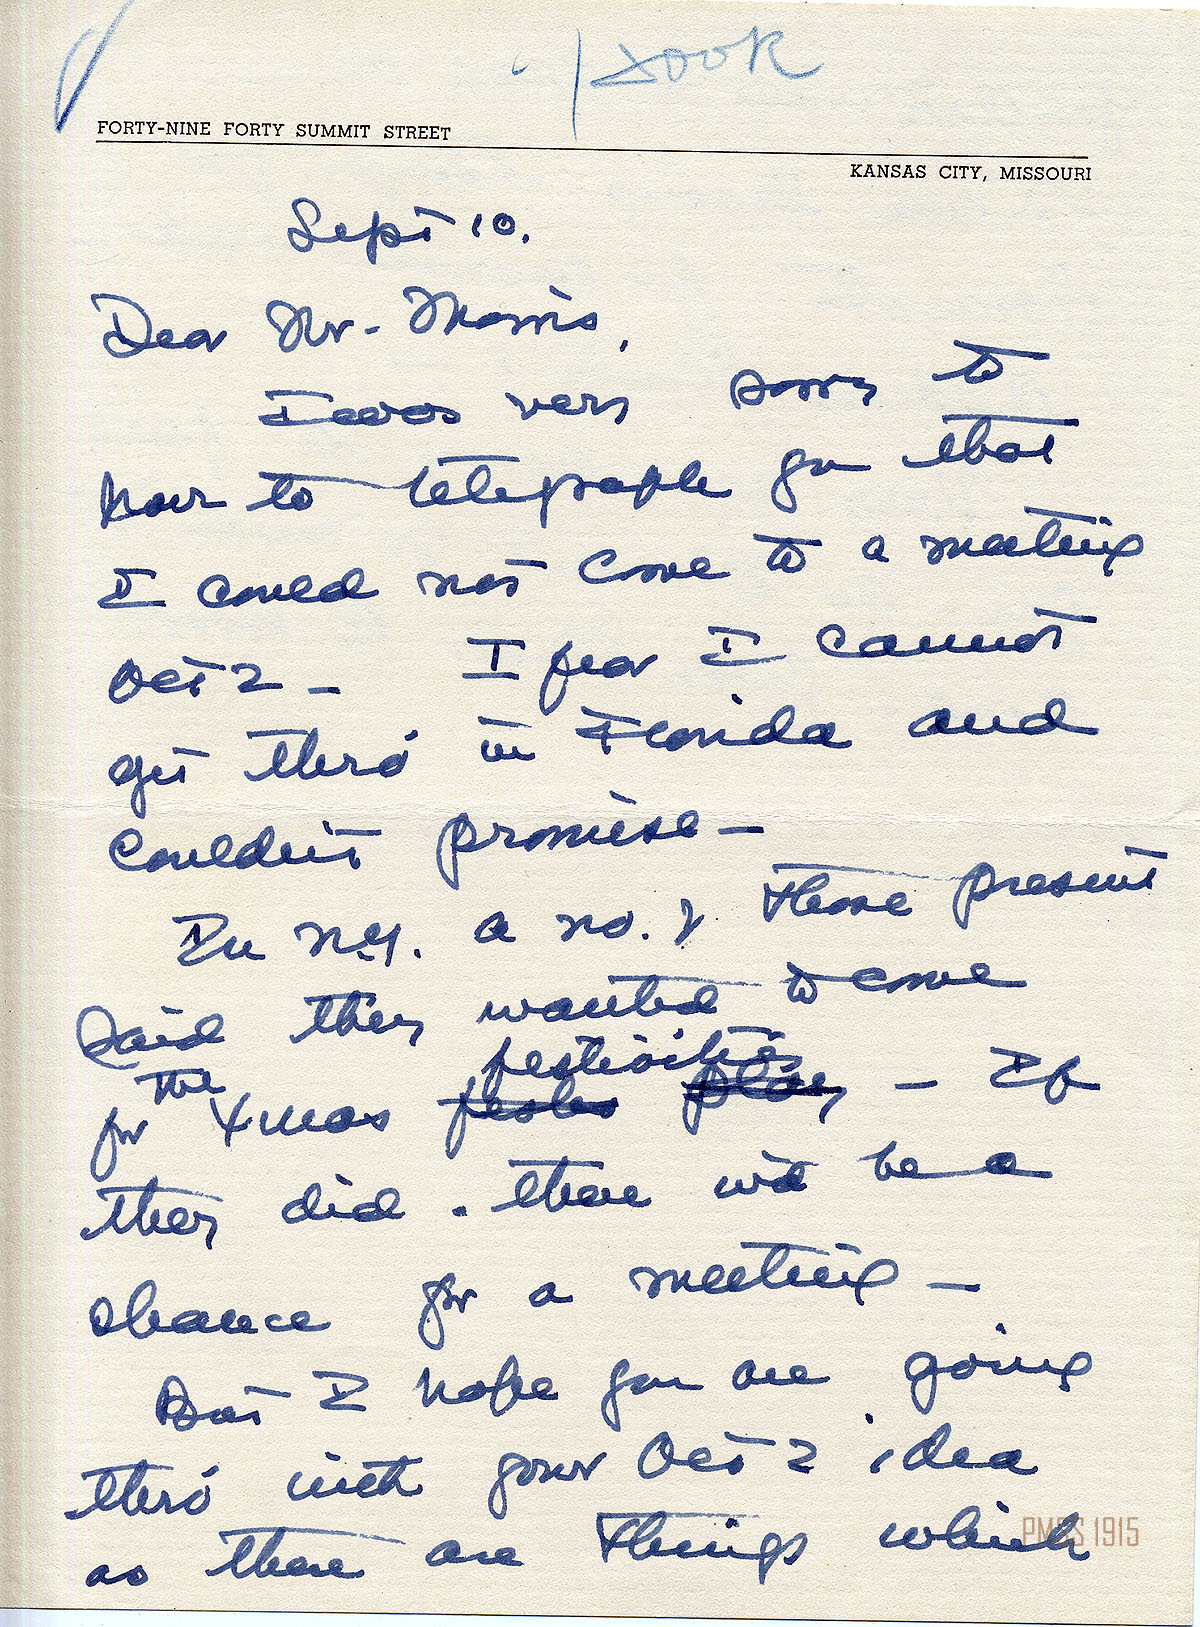 FORTY-NINE FORTY SUMMIT STREET
KANSAS CITY, MISSOURI
Sept 10.
Dear Mr. Morris,
I was very sorry to
have to telegraph you that
I could not come to a meeting
Oct 2 – I fear I cannot
get thro' in Florida and
couldn't promise –
In N.Y. a no. of those present
said they wanted to come
for the Xmas festivities – If
they did. there wd be a
chance for a meeting –
But I hope you are going
thro' with your Oct 2 idea
as there are things which
PMSS 1915